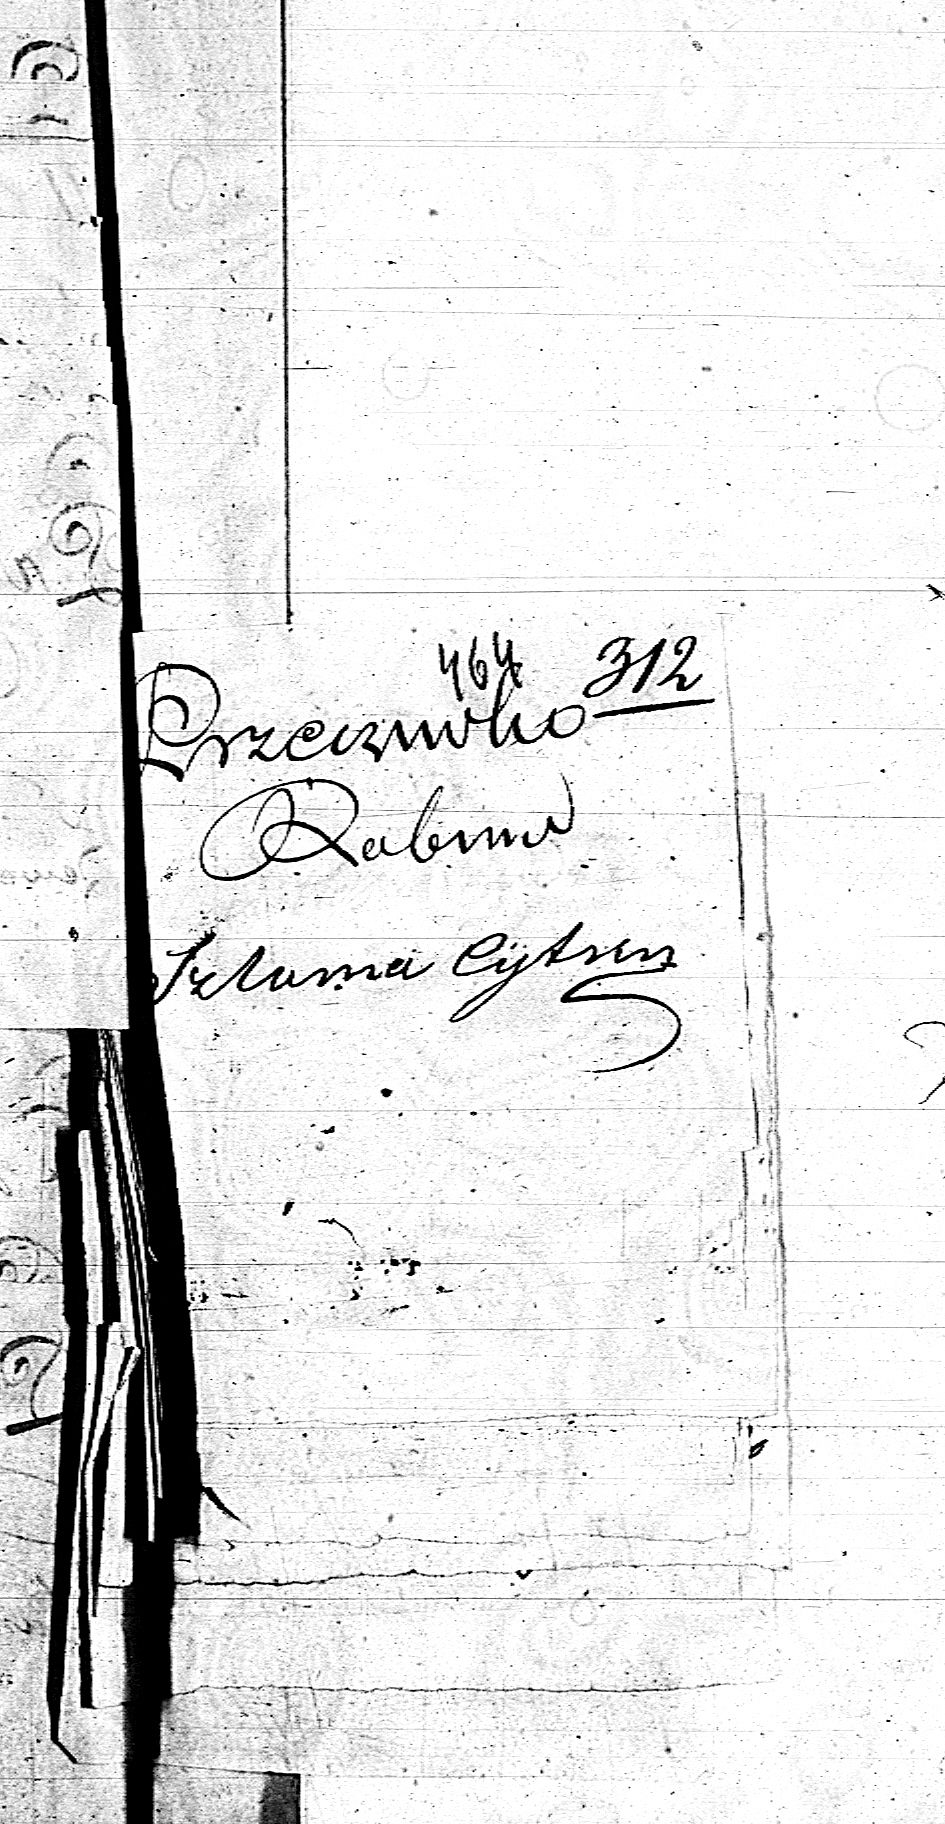 464 312
Przeciwko
Rabinw
Szlama Cytryn